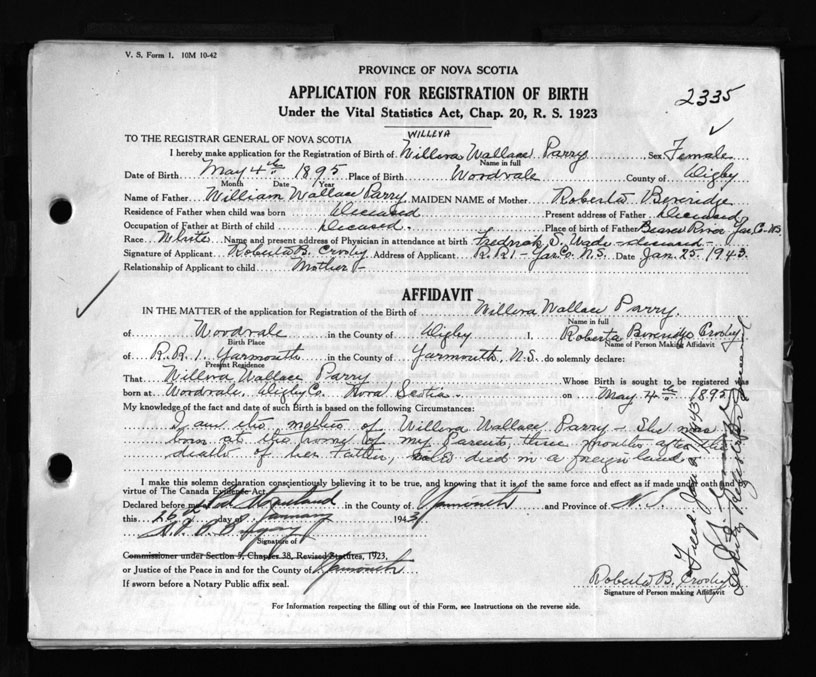 V. S. Form 1. 10M 10-42
PROVINCE OF NOVA SCOTIA
APPLICATION FOR REGISTRATION OF BIRTH
2335
Under the Vital Statistics Act, Chap. 20, R. S. 1923
TO THE REGISTRAR GENERAL OF NOVA SCOTIA
WILLVA
I hereby make application for the Registration of Birth of Willva Wallace Parry Sex Female
Name in full
Date of Birth May 4th 1895 Place of Birth Woodvale County of Digby
Month Date Year
Name of Father William Wallace Parry MAIDEN NAME of Mother Roberta Beveridge
Residence of Father when child was born Deceased Present address of Father Deceased
Occupation of Father at Birth of child Deceased. Place of birth of Father Beaver River Yar. Co. N.S
Race White Name and present address of Physician in attendance at birth Fredrick S. Wade - deceased -
Signature of Applicant Roberta B. Crosby Address of Applicant R.R.1 - Yar. Co. N.S. Date Jan. 25. 1943.
Relationship of Applicant to child Mother
AFFIDAVIT
IN THE MATTER of the application for Registration of the Birth of Willva Wallace Parry.
Name in full
of Woodvale in the County of Digby I, Roberta Beveridge Crosby
Birth Place Name of Person Making Affidavit
of R.R.1. Yarmouth in the County of Yarmouth, N.S. do solemnly declare:
Present Residence
That Willva Wallace Parry Whose Birth is sought to be registered was
born at Woodvale, Digby Co. Nova Scotia on May 4th 1895
My knowledge of the fact and date of such Birth is based on the following Circumstances:
I am the mother of Willva Wallace Parry - She was
born at the home of my Parents, three months after the
death of her Father, who died in a foreign land
I make this solemn declaration conscientiously believing it to be true, and knowing that it is of the same force and effect as if made under oath and
virtue of The Canada Evidence Act
Declared before me at in the County of Yarmouth and Province of N.S.
this 26th day of January 1943
Signature of
Commissioner under Section 9, Chapter 38, Revised Statutes, 1923,
or Justice of the Peace in and for the County of Yarmouth
If sworn before a Notary Public affix seal.
Roberta B. Crosby
Signature of Person making Affidavit
For Information respecting the filling out of this Form, see Instructions on the reverse side.
Filed Jan 29 1943
Deputy Registrar General